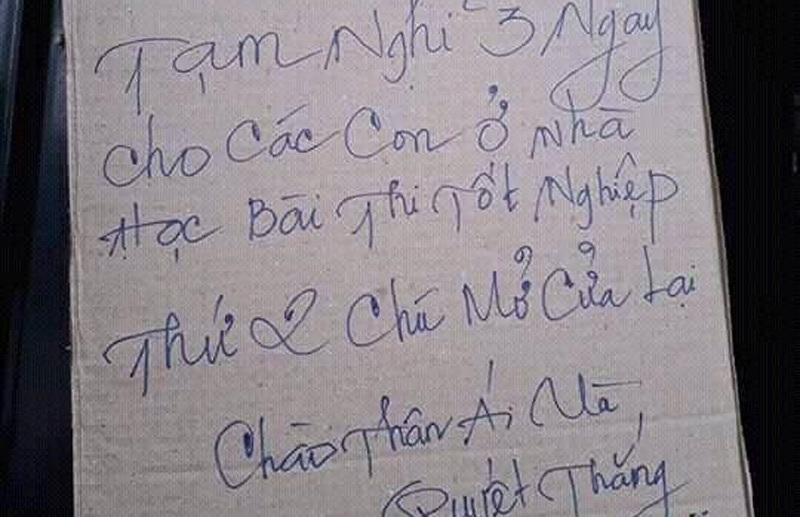 Tạm Nghỉ 3 Ngày
Cho Các Con ở Nhà
Học Bài Thi Tốt Nghiệp
Thứ 2 Chú Mở Cửa Lại
Chào Thân Ái Và,
Quyết Thắng